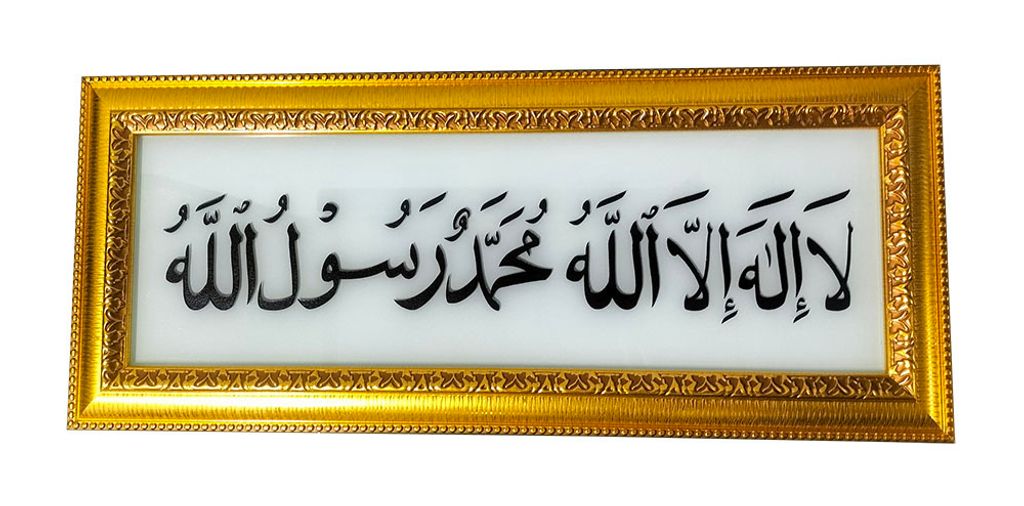 لَا إِلٰهَ إِلَّا ٱللَّهُ مُحَمَّدٌ رَسُوْلُ ٱللَّهُ